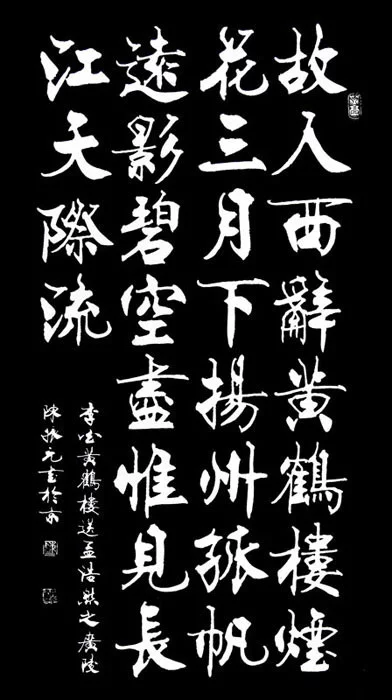 故人西辭黄鶴樓煙
花三月下揚州孤帆
遠影碧空盡惟見長
江天際流
李白黄鶴樓送孟浩然之廣陵
陳振元書於京